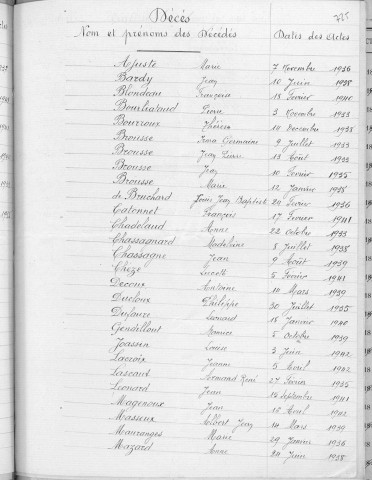 Décès
725
Nom et prénoms des Décédés Dates des Actes
Ajuste Marie 7 Novembre 1936
Bardy Jean 10 Juin 1938
Blondeau Françoise 18 Février 1940
Pierre 3 Novembre 1933
Bourroux Thérèse 14 Décembre 1938
Brousse Irma Germaine 9 Juillet 1933
Brousse Jean Pierre 13 Août 1933
Brousse Jean 10 Février 1935
Brousse Marie 12 Janvier 1938
de Bruchard Jean Baptiste 20 Février 1936
Catonnet François 17 Février 1941
Chadelaud Anne 22 Octobre 1933
Chassagnard Madeleine 8 Juillet 1938
Chassagne Jean 9 Août 1939
Chèze 5 Février 1941
Decoux Antoine 10 Mars 1939
Ducloux Philippe 30 Juillet 1935
Dufaure Léonard 18 Janvier 1940
Gendillout 5 Octobre 1939
Joassin Louise 3 Juin 1942
Lacroix Jeanne 5 Avril 1942
Germond René 27 Février 1935
Léonard Jean 15 Septembre 1941
Magenoux Jean 18 Avril 1942
Masseux Albert Jean 14 Mars 1939
Mauranges Marie 29 Janvier 1936
Mazard Anne 24 Juin 1938